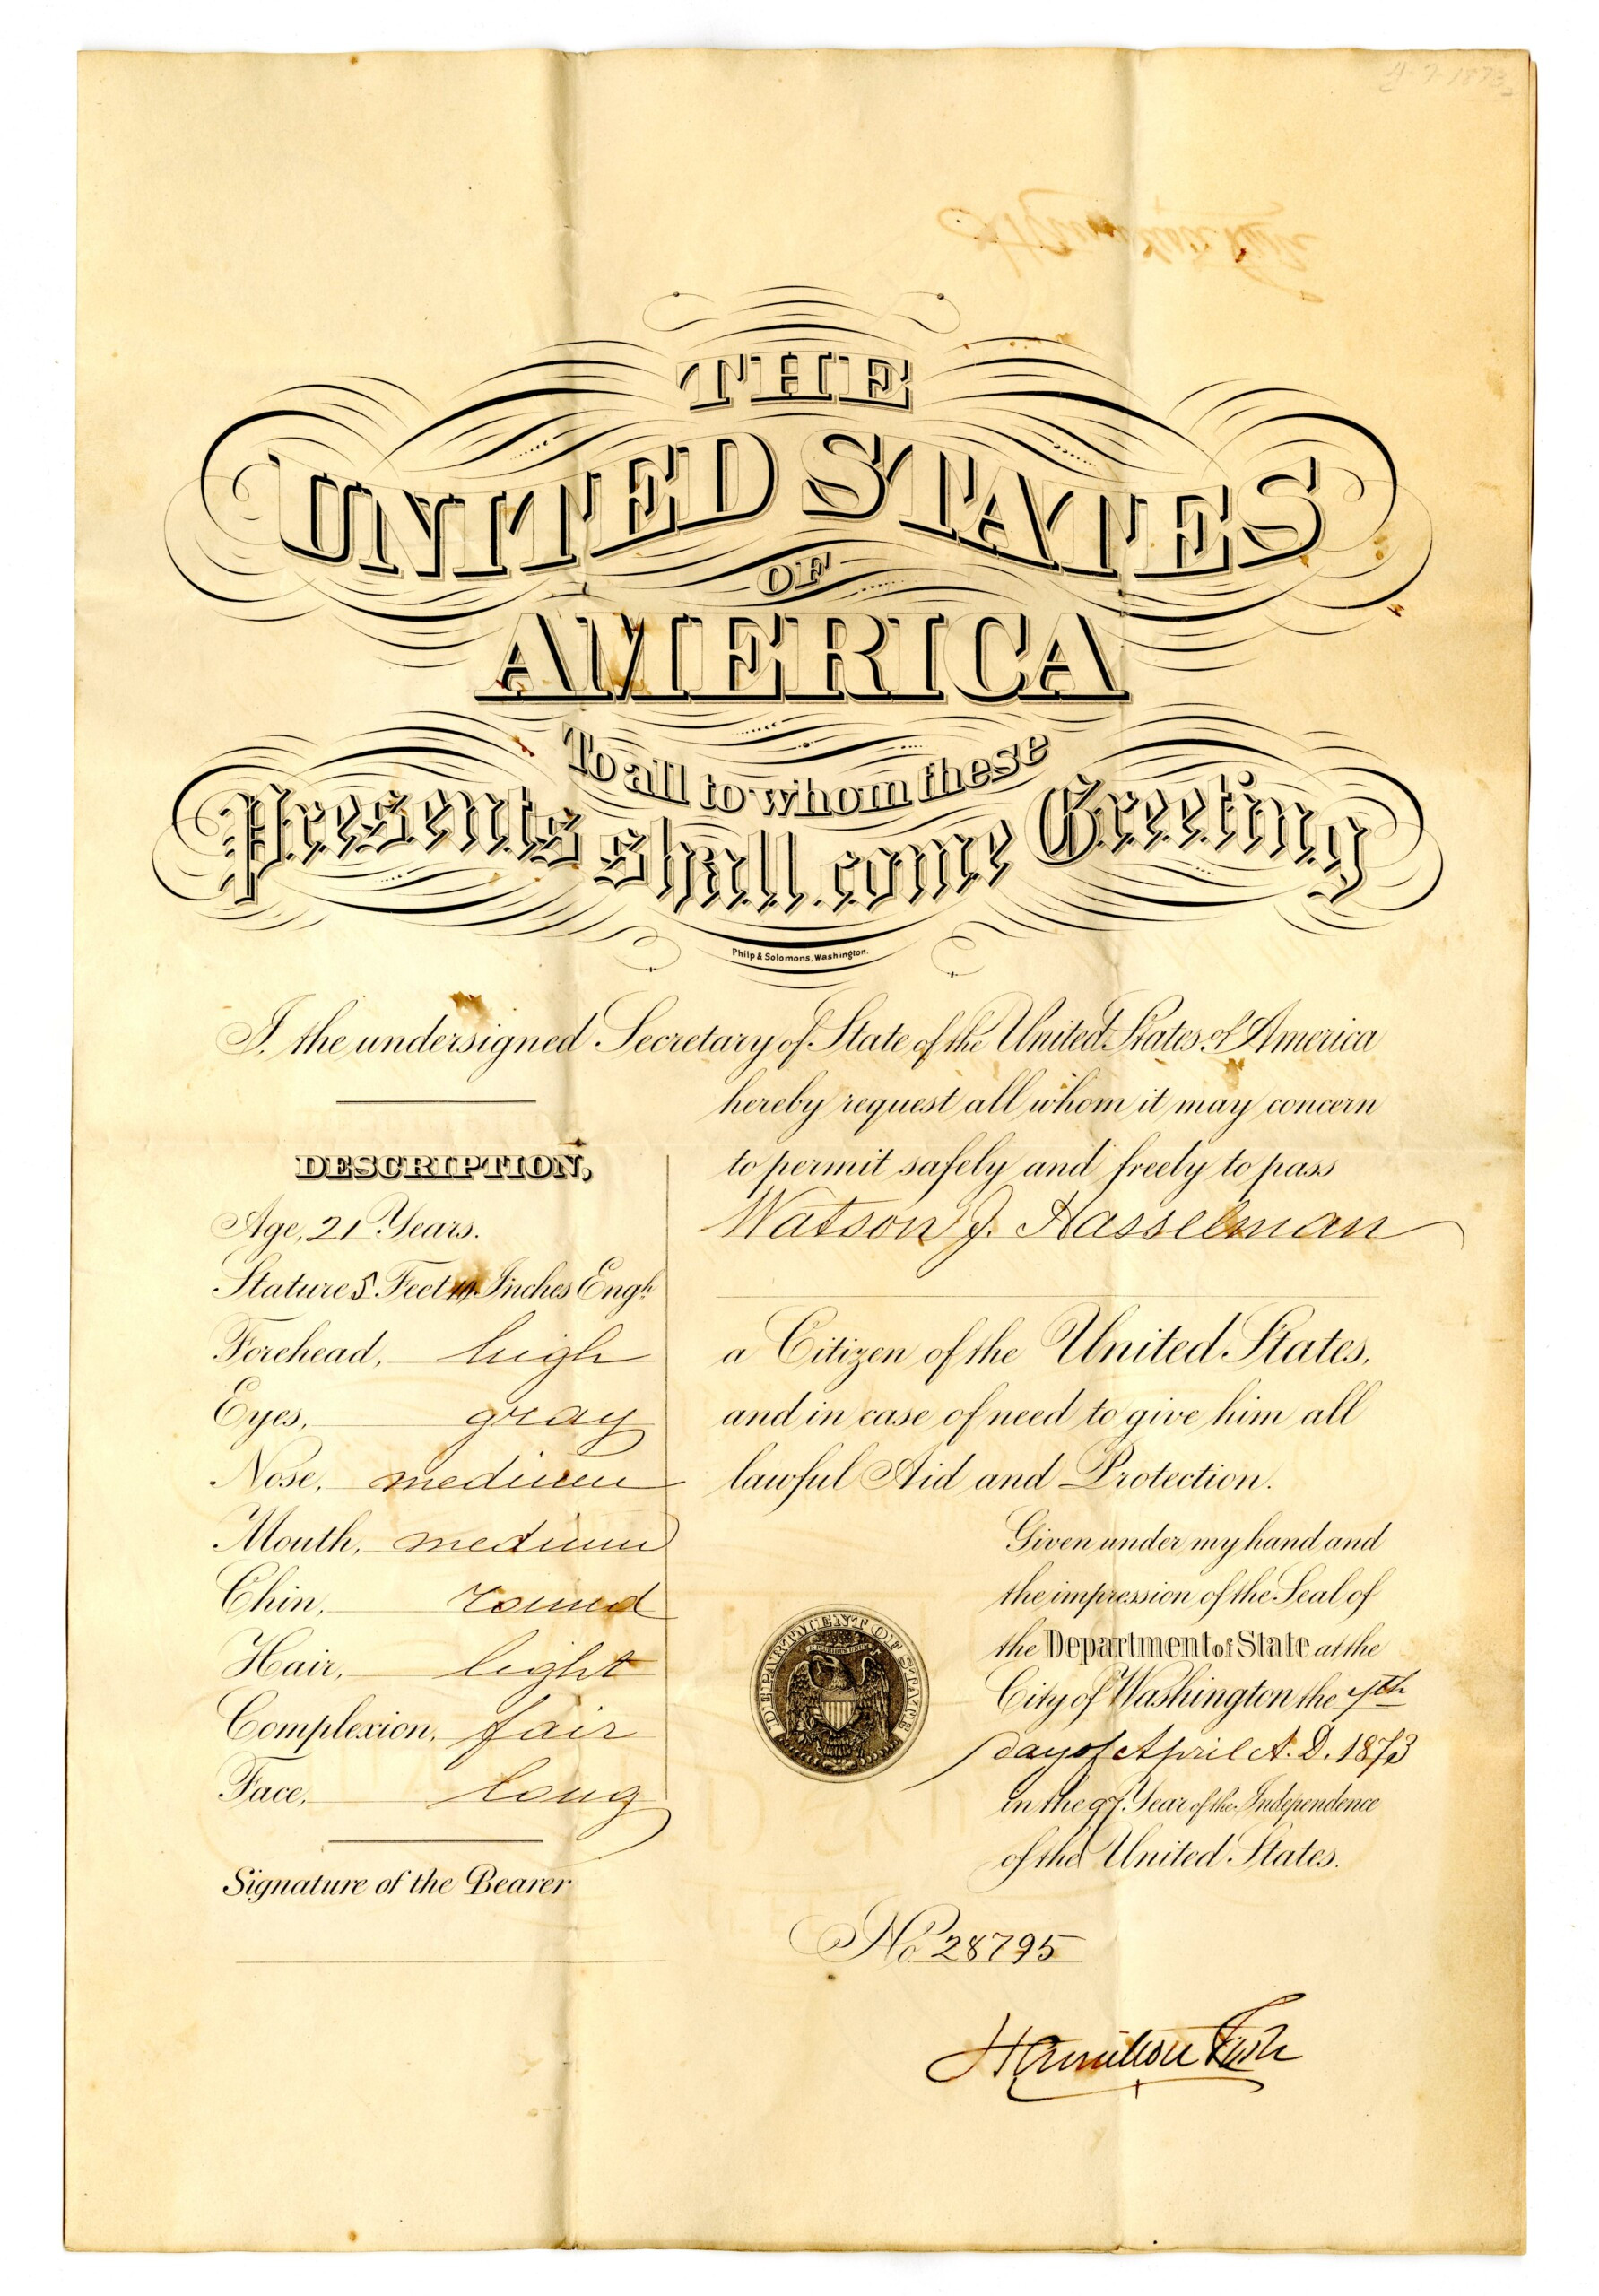 4-7-1873
THE
UNITED STATES
OF
AMERICA
To all to whom these
Presents shall come Greeting
Philp & Solomons, Washington.
I, the undersigned Secretary of State of the United States of America
hereby request all whom it may concern
to permit safely and freely to pass
Watson J. Hasselman
a Citizen of the United States,
and in case of need to give him all
lawful Aid and Protection.
Given under my hand and
the impression of the Seal of
the Department of State at the
City of Washington the 7th
day of April A. D. 1873
in the 97 Year of the Independence
of the United States.
DESCRIPTION,
Age, 21 Years.
Stature 5 Feet Inches Engh
Forehead, high
Eyes, gray
Nose, medium
Mouth, medium
Chin, round
Hair, light
Complexion, fair
Face, long
Signature of the Bearer
DEPARTMENT OF STATE
No. 28795
Hamilton Fish